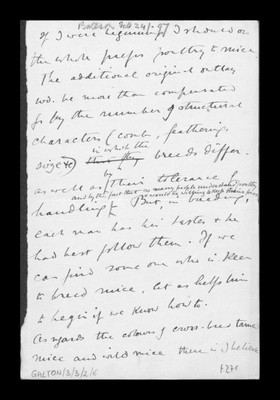 Bateson Feb 24/97
If I were beginning I should on
the whole prefer poultry to mice.
The additional original outlay
wd. be more than compensated
for by the number of structural
characters (comb, feathering,
size &c) in which the breeds differ
as well as by their tolerance of
and by the fact that so many people understand poultry
handling. But, in breeding,
each man has his tastes & he
had best follow them. If we
can find some one who is keen
to breed mice, let us help him
to begin if we know how to.
As regards the colours of cross-bred tame
mice and wild mice there is I believe
GALTON/3/3/2/6